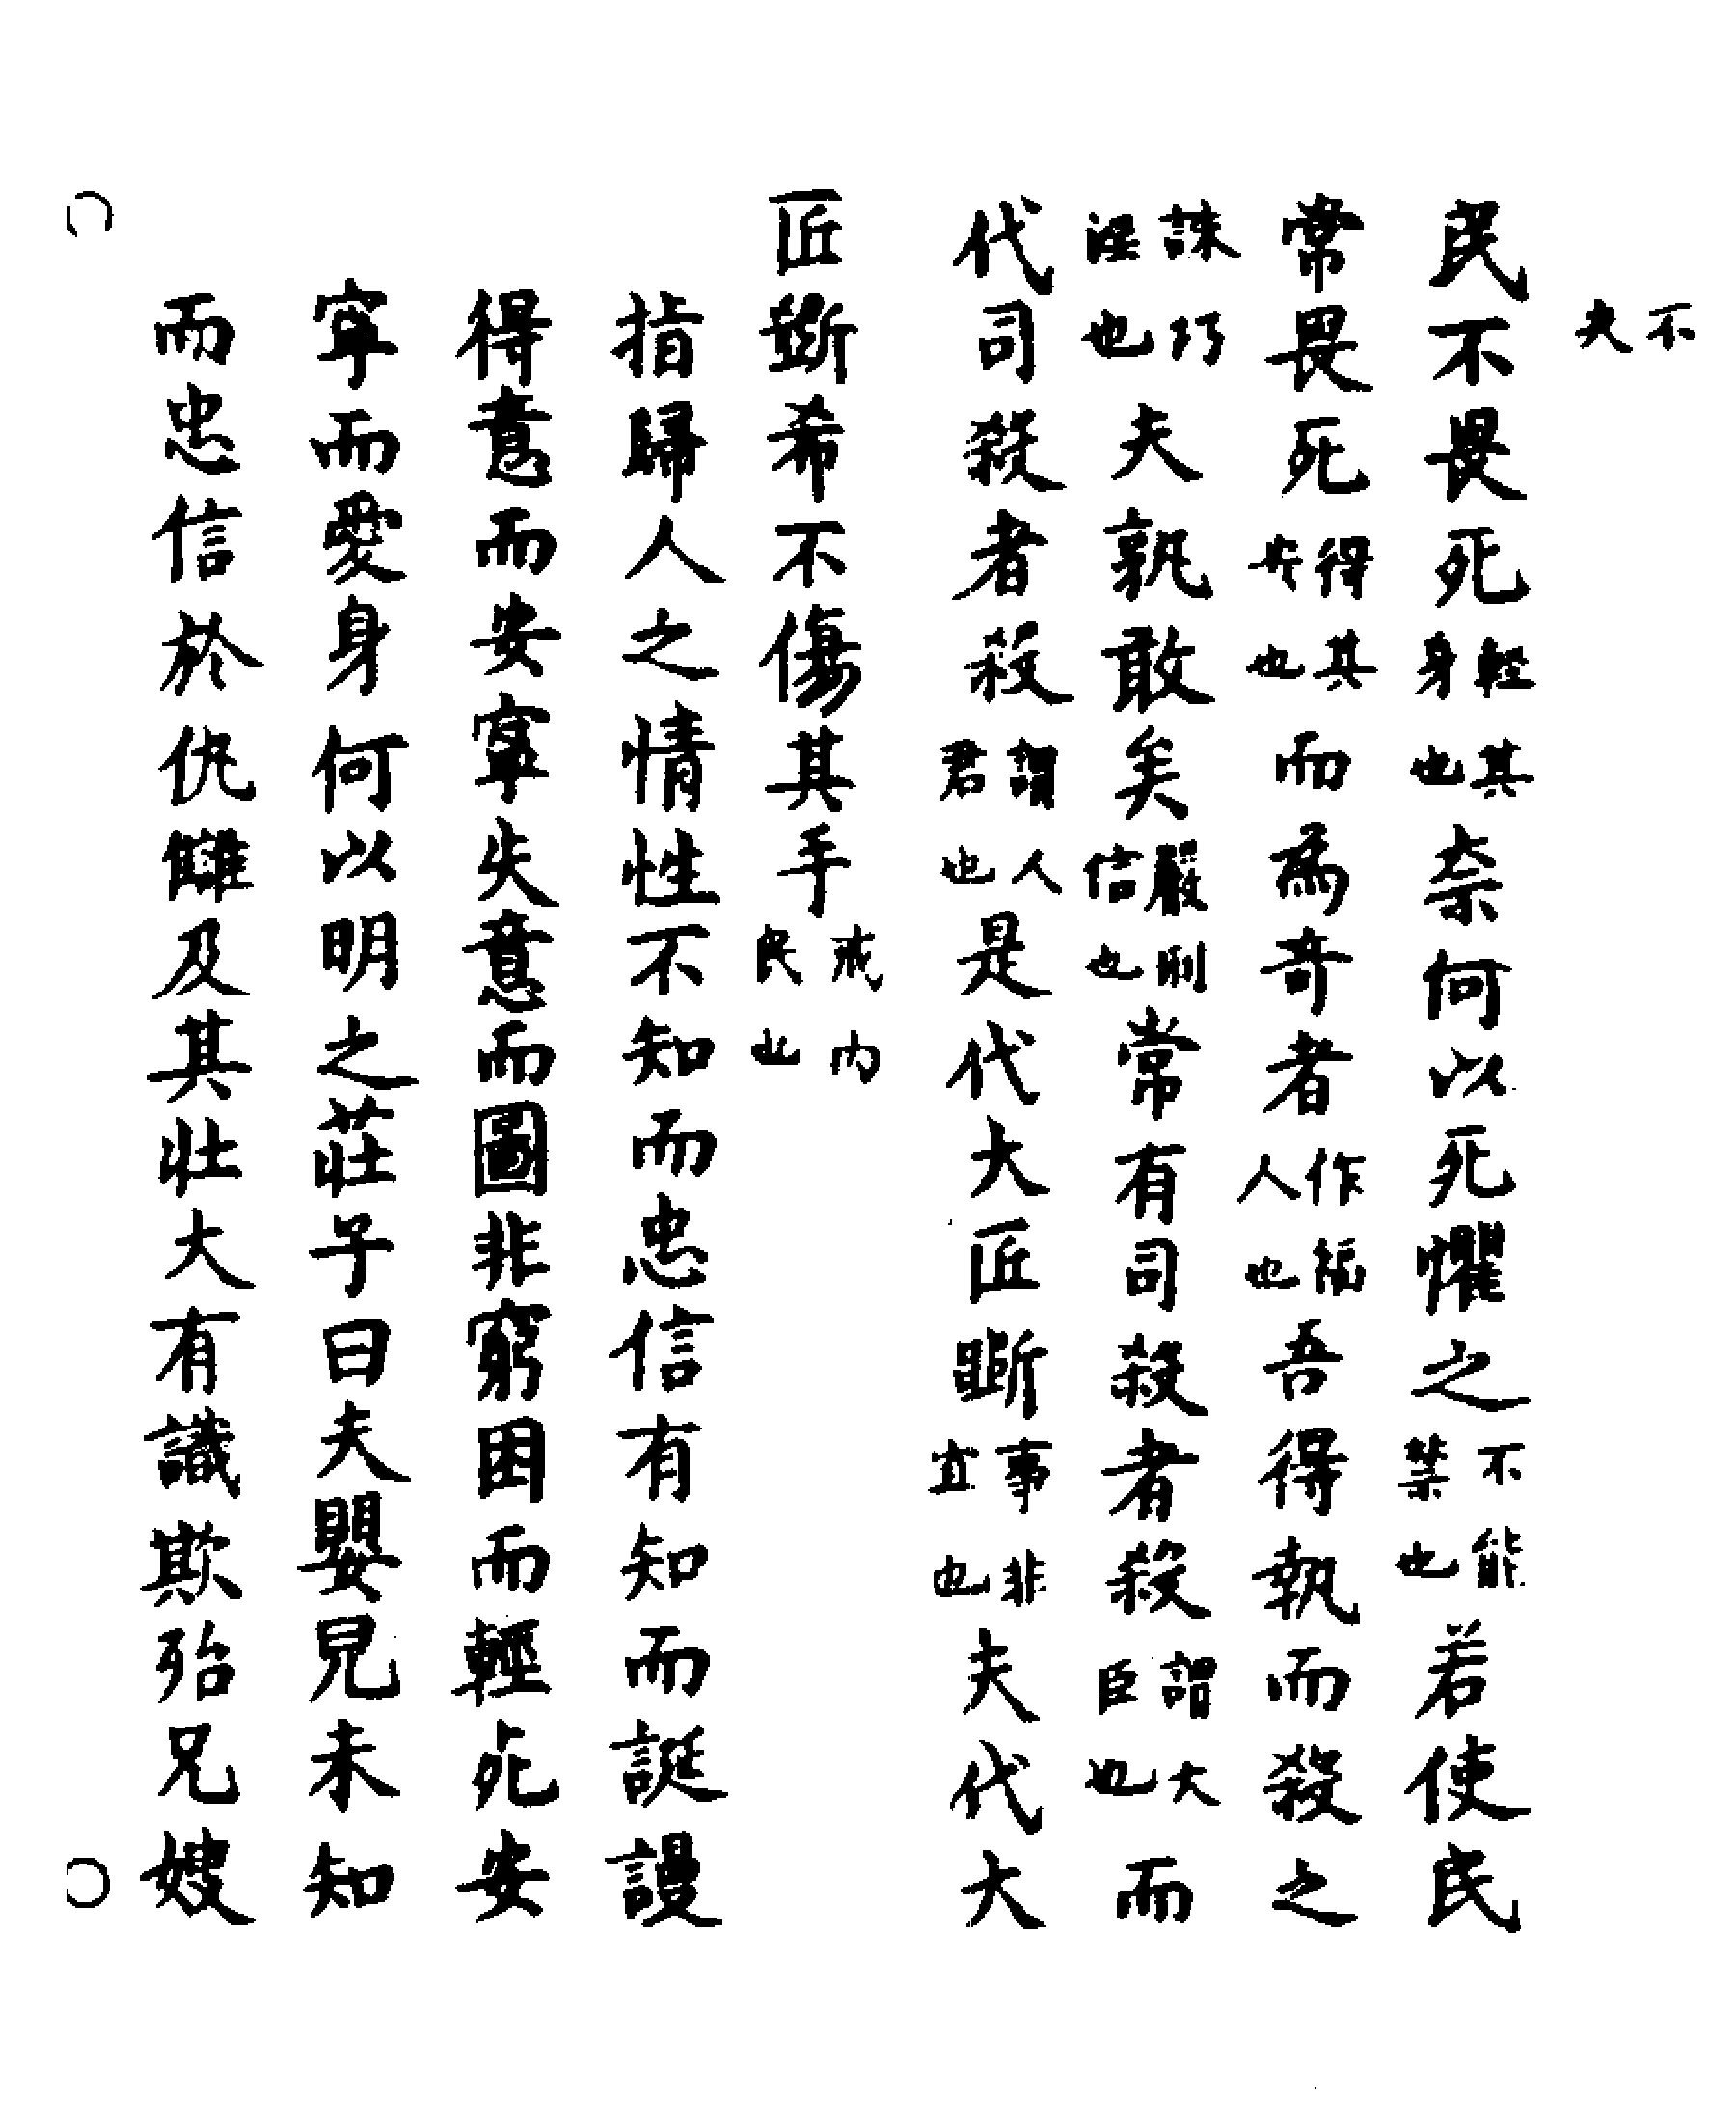 不夫
民不畏死輕其身也奈何以死懼之不能禁也若使民
常畏死得其也而為奇者作福人也吾得執而殺之
誅巧淫也夫孰敢矣嚴刑信也常有司殺者殺謂大臣也而
代司殺者殺謂人君也是代大匠斲事非宜也夫代大
匠斲希不傷其手戒內民也
指歸人之情性不知而忠信有知而誕謾
得意而安寧失意而圖非窮困而輕死安
寧而愛身何以明之莊子曰夫嬰兒未知
而忠信於仇讎及其壯大有識欺殆兄嫂